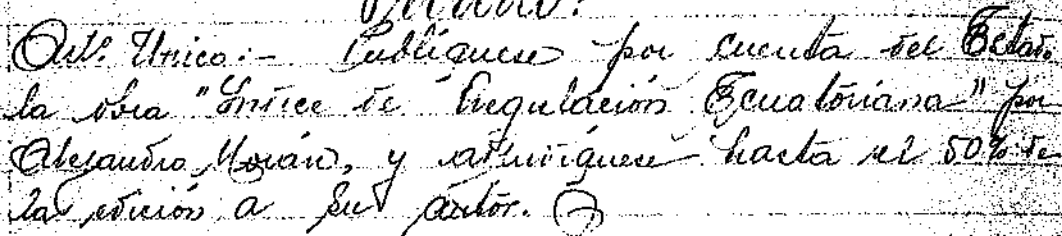 Art. Unico:- Publíquese por cuenta del Estado
la obra "Indice de Regulación Ecuatoriana" por
Alejandro Morán, y adjudíquese hasta el 50% de
la edición a su autor.